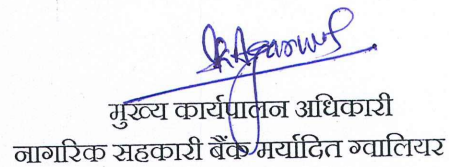 मुख्य कार्यपालन अधिकारी
नागरिक सहकारी बैंक मर्यादित ग्वालियर